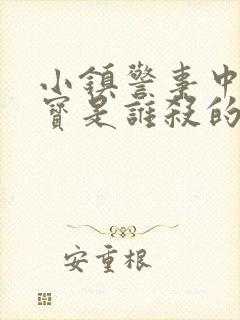 小鎮警事中
寳是誰殺的
安重根